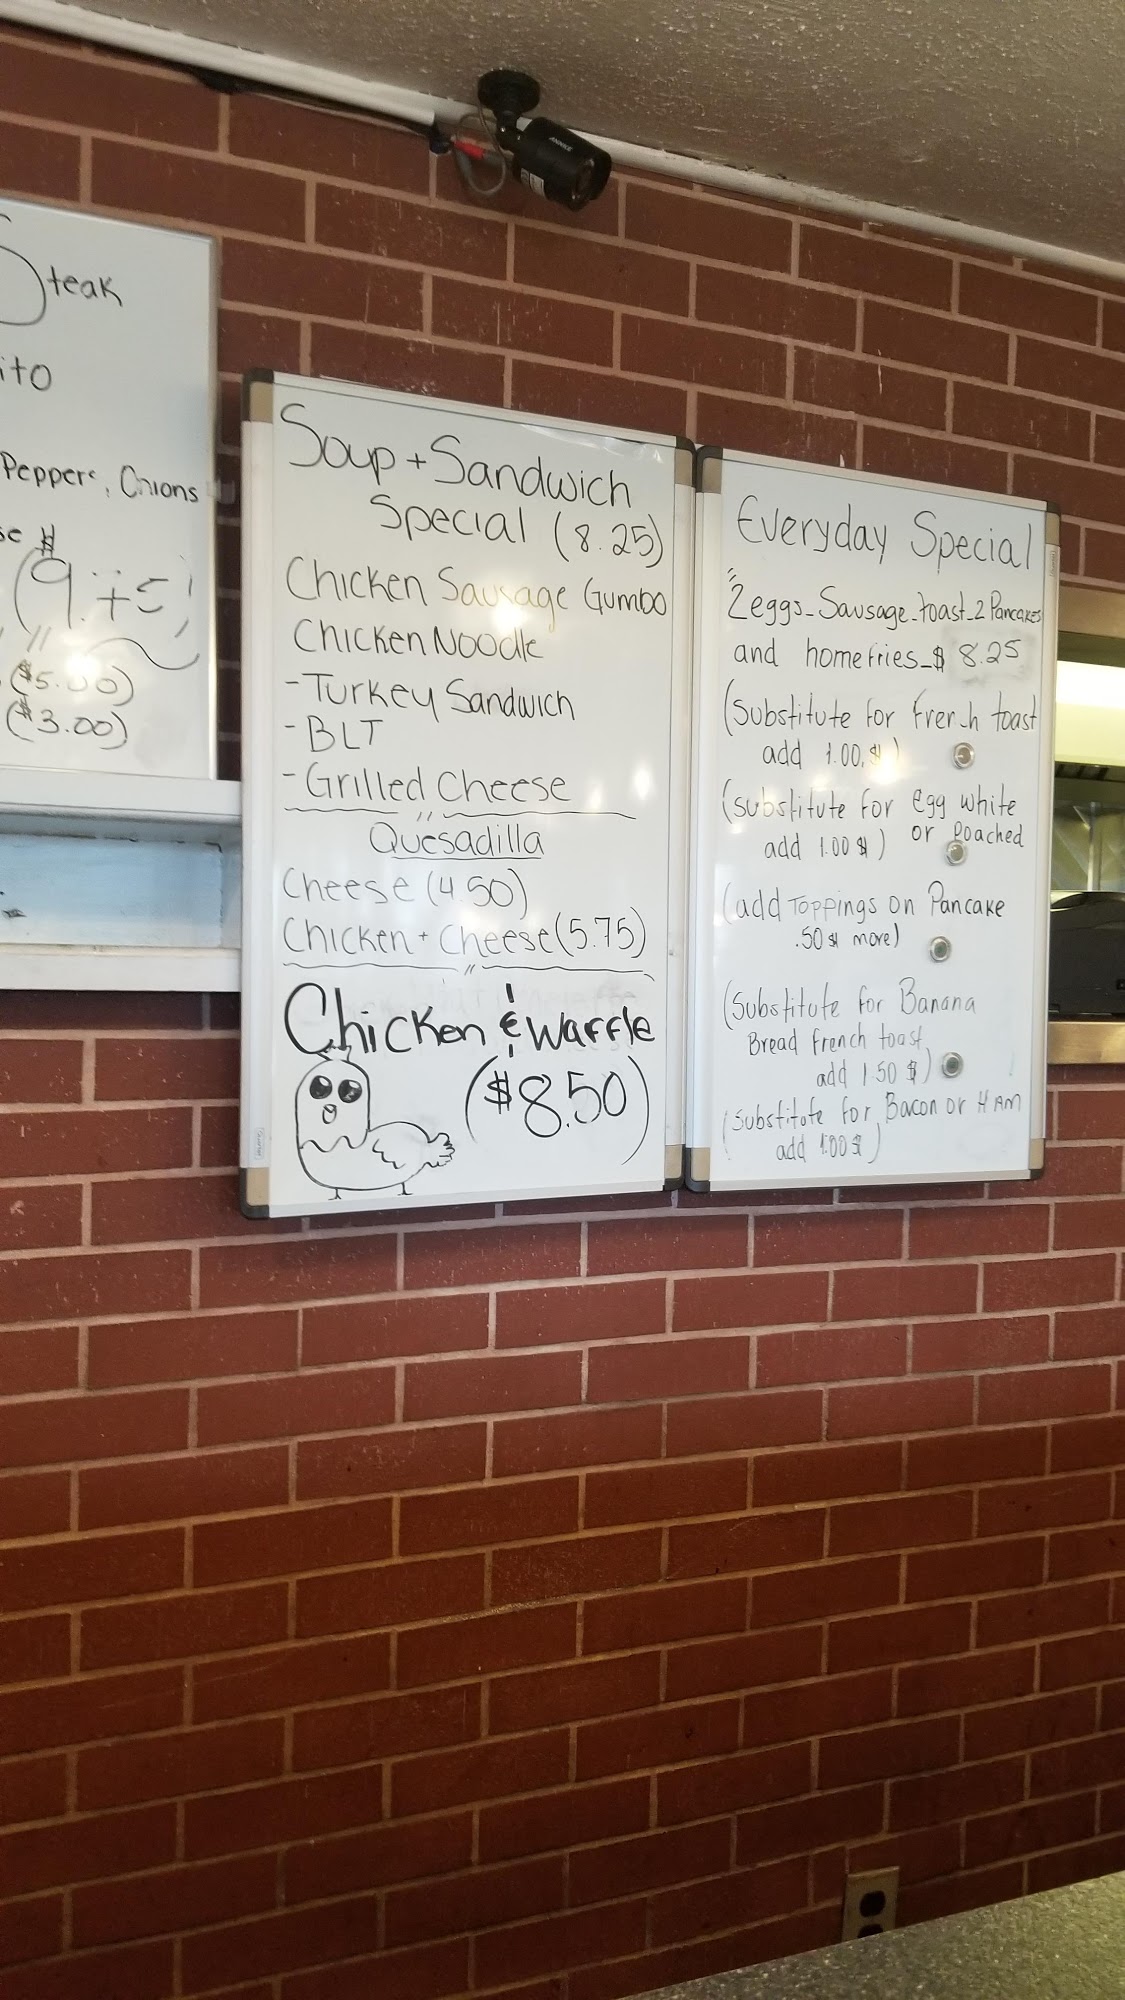 Steak
ito
Peppers, Onions
se $
($5.00)
($3.00)
Soup + Sandwich
Special (8.25)
Chicken Sausage Gumbo
Chicken Noodle
- Turkey Sandwich
- BLT
- Grilled Cheese
Quesadilla
Cheese (4.50)
Chicken + Cheese (5.75)
Chicken & Waffle
($8.50)
Everyday Special
2 eggs - Sausage - toast - 2 Pancakes
and homefries - $ 8.25
(Substitute for French toast
add 1.00 $)
(substitute for egg white
or Poached
add 1.00 $)
(add Toppings on Pancake
.50 $ more)
(Substitute for Banana
Bread French toast
add 1.50 $)
(substitute for Bacon or HAM
add 1.00 $)
ANNKE